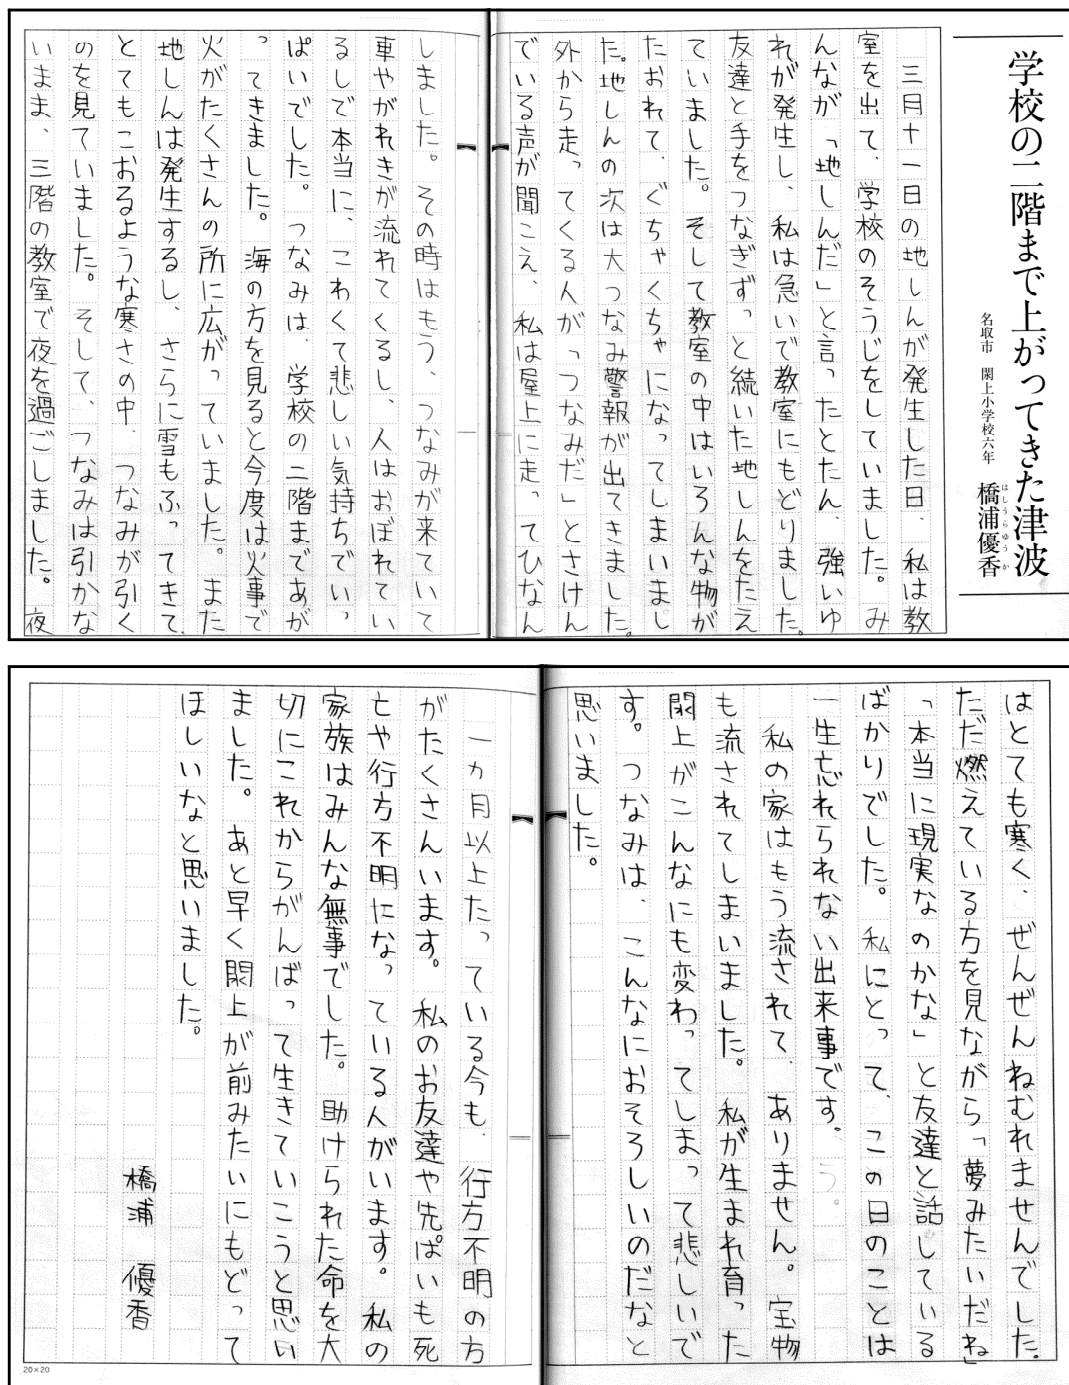 学校の二階まで上がってきた津波
名取市 閖上小学校六年 橋浦優香
はしうらゆうか
三月十一日の地しんが発生した日、私は教
室を出て、学校のそうじをしていました。み
んなが「地しんだ」と言ったとたん、強いゆ
れが発生し、私は急いで教室にもどりました。
友達と手をつなぎずっと続いた地しんをたえ
ていました。そして教室の中はいろんな物が
たおれて、ぐちゃくちゃになってしまいまし
た。地しんの次は大つなみ警報が出てきました。
外から走ってくる人が「つなみだ」とさけん
でいる声が聞こえ、私は屋上に走ってひなん
しました。その時はもう、つなみが来ていて
車やがれきが流れてくるし、人はおぼれてい
るしで本当に、こわくて悲しい気持ちでいっ
ぱいでした。つなみは、学校の二階まであが
ってきました。海の方を見ると今度は火事で
火がたくさんの所に広がっていました。また
地しんは発生するし、さらに雪もふってきて、
とてもこおるような寒さの中、つなみが引く
のを見ていました。そして、つなみは引かな
いまま、三階の教室で夜を過ごしました。夜
はとても寒く、ぜんぜんねむれませんでした。
ただ燃えている方を見ながら「夢みたいだね」
「本当に現実なのかな」と友達と話している
ばかりでした。私にとって、この日のことは
一生忘れられない出来事です。
私の家はもう流されて、ありません。宝物
も流されてしまいました。私が生まれ育った
閖上がこんなにも変わってしまって悲しいで
す。つなみは、こんなにおそろしいのだなと
思いました。
一カ月以上たっている今も、行方不明の方
がたくさんいます。私のお友達や先ぱいも死
亡や行方不明になっている人がいます。私の
家族はみんな無事でした。助けられた命を大
切にこれからがんばって生きていこうと思い
ました。あと早く閖上が前みたいにもどって
ほしいなと思いました。
橋浦 優香
20×20